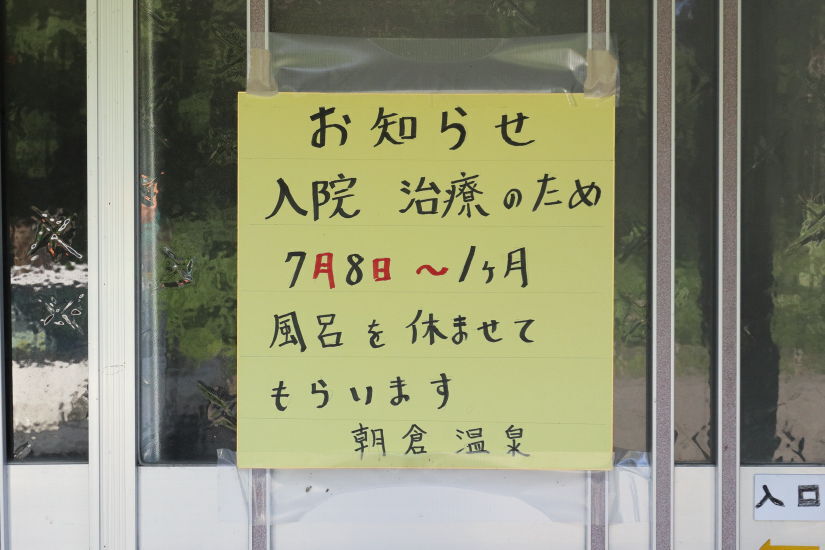 お知らせ
入院 治療のため
7月8日 〜1ヶ月
風呂を休ませて
もらいます
朝倉温泉
入口